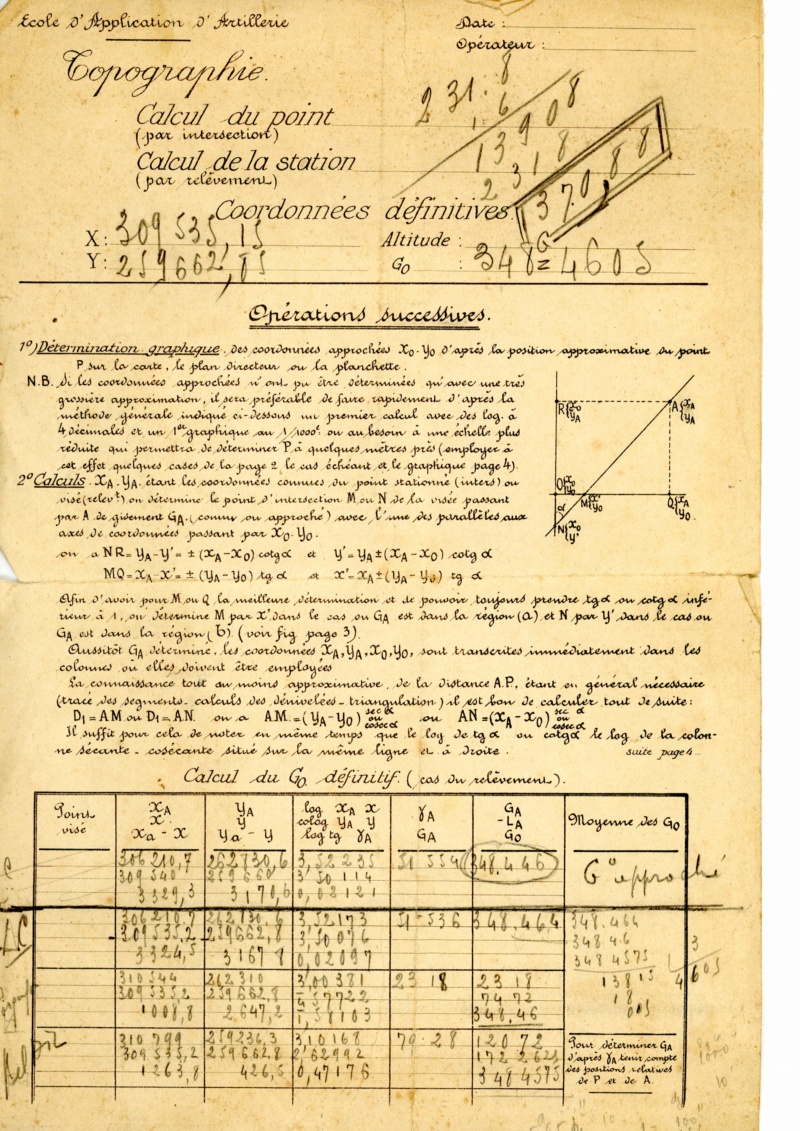 École d'Application d'Artillerie
Date :
Opérateur :
Topographie.
231.8
1.6
13908
2318
37088
Calcul du point
(par intersection)
Calcul de la station
(par relèvement)
Coordonnées définitives.
X: 309 535,15
Y: 259662,85
Altitude :
G₀ : 348 G = 4605
Opérations successives.
1°) Détermination graphique. des coordonnées approchées X₀.Y₀ d'après la position approximative du point
P sur la carte, le plan directeur ou la planchette.
N.B. Si les coordonnées approchées n'ont pu être déterminées qu'avec une très
grossière approximation, il sera préférable de faire rapidement d'après la
méthode générale indiqué ci-dessous un premier calcul avec des log. à
4 décimales et un 1er graphique au 1/1000e ou au besoin à une échelle plus
réduite qui permettra de déterminer P à quelques mètres près (employer à
cet effet quelques cases de la page 2 le cas échéant et le graphique page 4).
2° Calculs. XA.YA. étant les coordonnées connues du point stationné (inters) ou
visé (relevt) on détermine le point d'intersection M ou N de la visée passant
par A de gisement GA. (connu ou approché) avec l'une des parallèles aux
axes de coordonnées passant par X₀.Y₀.
on a NR = YA-Y' = ± (XA-X₀) cotg α et Y' = YA ± (XA-X₀) cotg α
MQ = XA-X' = ± (YA-Y₀) tg α et X' = XA ± (YA-Y₀) tg α
R { X₀ YA
A { XA YA
O { X₀ Y₀
M { X' Y₀
Q { XA Y₀
α
N { X₀ Y'
Afin d'avoir pour M ou Q la meilleure détermination et de pouvoir toujours prendre tg α ou cotg α infé-
rieur à 1, on détermine M par X' dans le cas ou GA est dans la région (a) et N par Y' dans le cas ou
GA est dans la région (b) (voir fig page 3).
Aussitôt GA déterminé, les coordonnées XA,YA,X₀,Y₀, sont transcrites immédiatement dans les
colonnes où elles doivent être employées
La connaissance tout au moins approximative, de la distance A.P, étant en général nécessaire
(tracé des segments - calculs des dénivelées - triangulation) il est bon de calculer tout de suite:
D₁ = AM ou D₁ = A.N. on a A.M. = (YA-Y₀) sec α ou cosec α ou AN = (XA-X₀) sec α ou cosec α
Il suffit pour cela de noter en même temps que le log de tg α ou cotg α le log de la colon-
ne sécante - cosécante situé sur la même ligne et à droite.
suite page 4
Calcul du G₀ définitif. (cas du relèvement).
Points visé | XA X Xa - X | YA Y Ya - Y | log XA X colog YA Y log tg γA | γA GA | GA -LA G₀ | Moyenne des G₀
306210,7 262830,6 3,52235 51 554 348.446 G° approché
309540 259660 3,50114
3329,3 3170,6 0,02121
306210,7 262830.6 3,52173 51-536 348.464 348.464
309535,2 259662,8 3,50076 348 46
3324,5 3167 8 0,02097 348 4575 3
310544 262310 3,00381 23 18 23 18 13815 4605
309535,2 259662,8 4,57722 74 72 18
1008,8 2647,2 1,58103 348,46 005
310 799 259236,3 3,10168 79-28 120 72
309535,2 259662,8 2,62992 172 2625
1263,8 426,5 0,47176 348 4575
Pour déterminer GA
d'après γA tenir compte
des positions relatives
de P et de A.